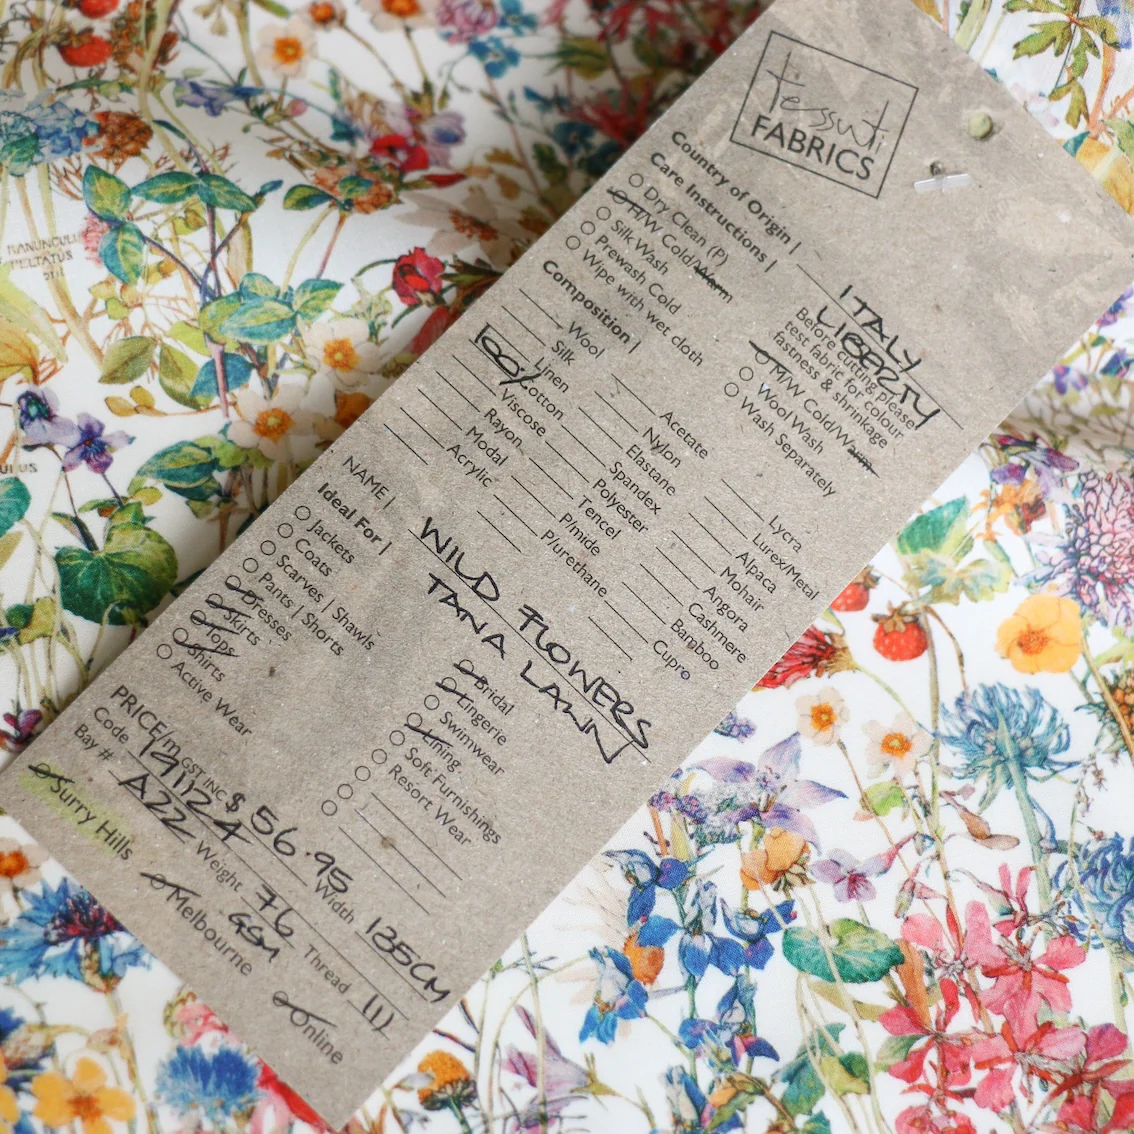 tessuti
FABRICS
Country of Origin | ITALY
LIBERTY
Care Instructions |
Before cutting please
test fabric for colour
fastness & shrinkage
Dry Clean (P)
H/W Cold/Warm
Silk Wash
Prewash Cold
Wipe with wet cloth
M/W Cold/Warm
Wool Wash
Wash Separately
Composition |
Wool
Silk
Linen
100% Cotton
Viscose
Rayon
Modal
Acrylic
Acetate
Nylon
Elastane
Spandex
Polyester
Tencel
P/mide
P/urethane
Lycra
Lurex/Metal
Alpaca
Mohair
Angora
Cashmere
Bamboo
Cupro
NAME | WILD FLOWERS
TANA LAWN
Ideal For |
Jackets
Coats
Scarves | Shawls
Pants | Shorts
Dresses
Skirts
Tops
Shirts
Active Wear
Bridal
Lingerie
Swimwear
Lining
Soft Furnishings
Resort Wear
PRICE/m GST INC $56.95
Code 191124 Width 135CM
Bay # A22 Weight 76 GSM Thread
Surry Hills
Melbourne
Online
RANUNCULU
PELTATUS